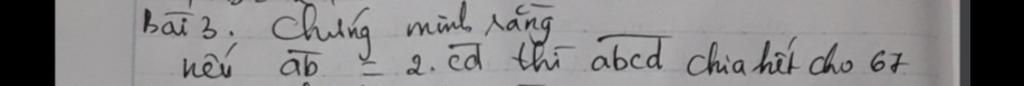 Bài 3. Chứng minh rằng
nếu ab = 2. cd thì abcd chia hết cho 67